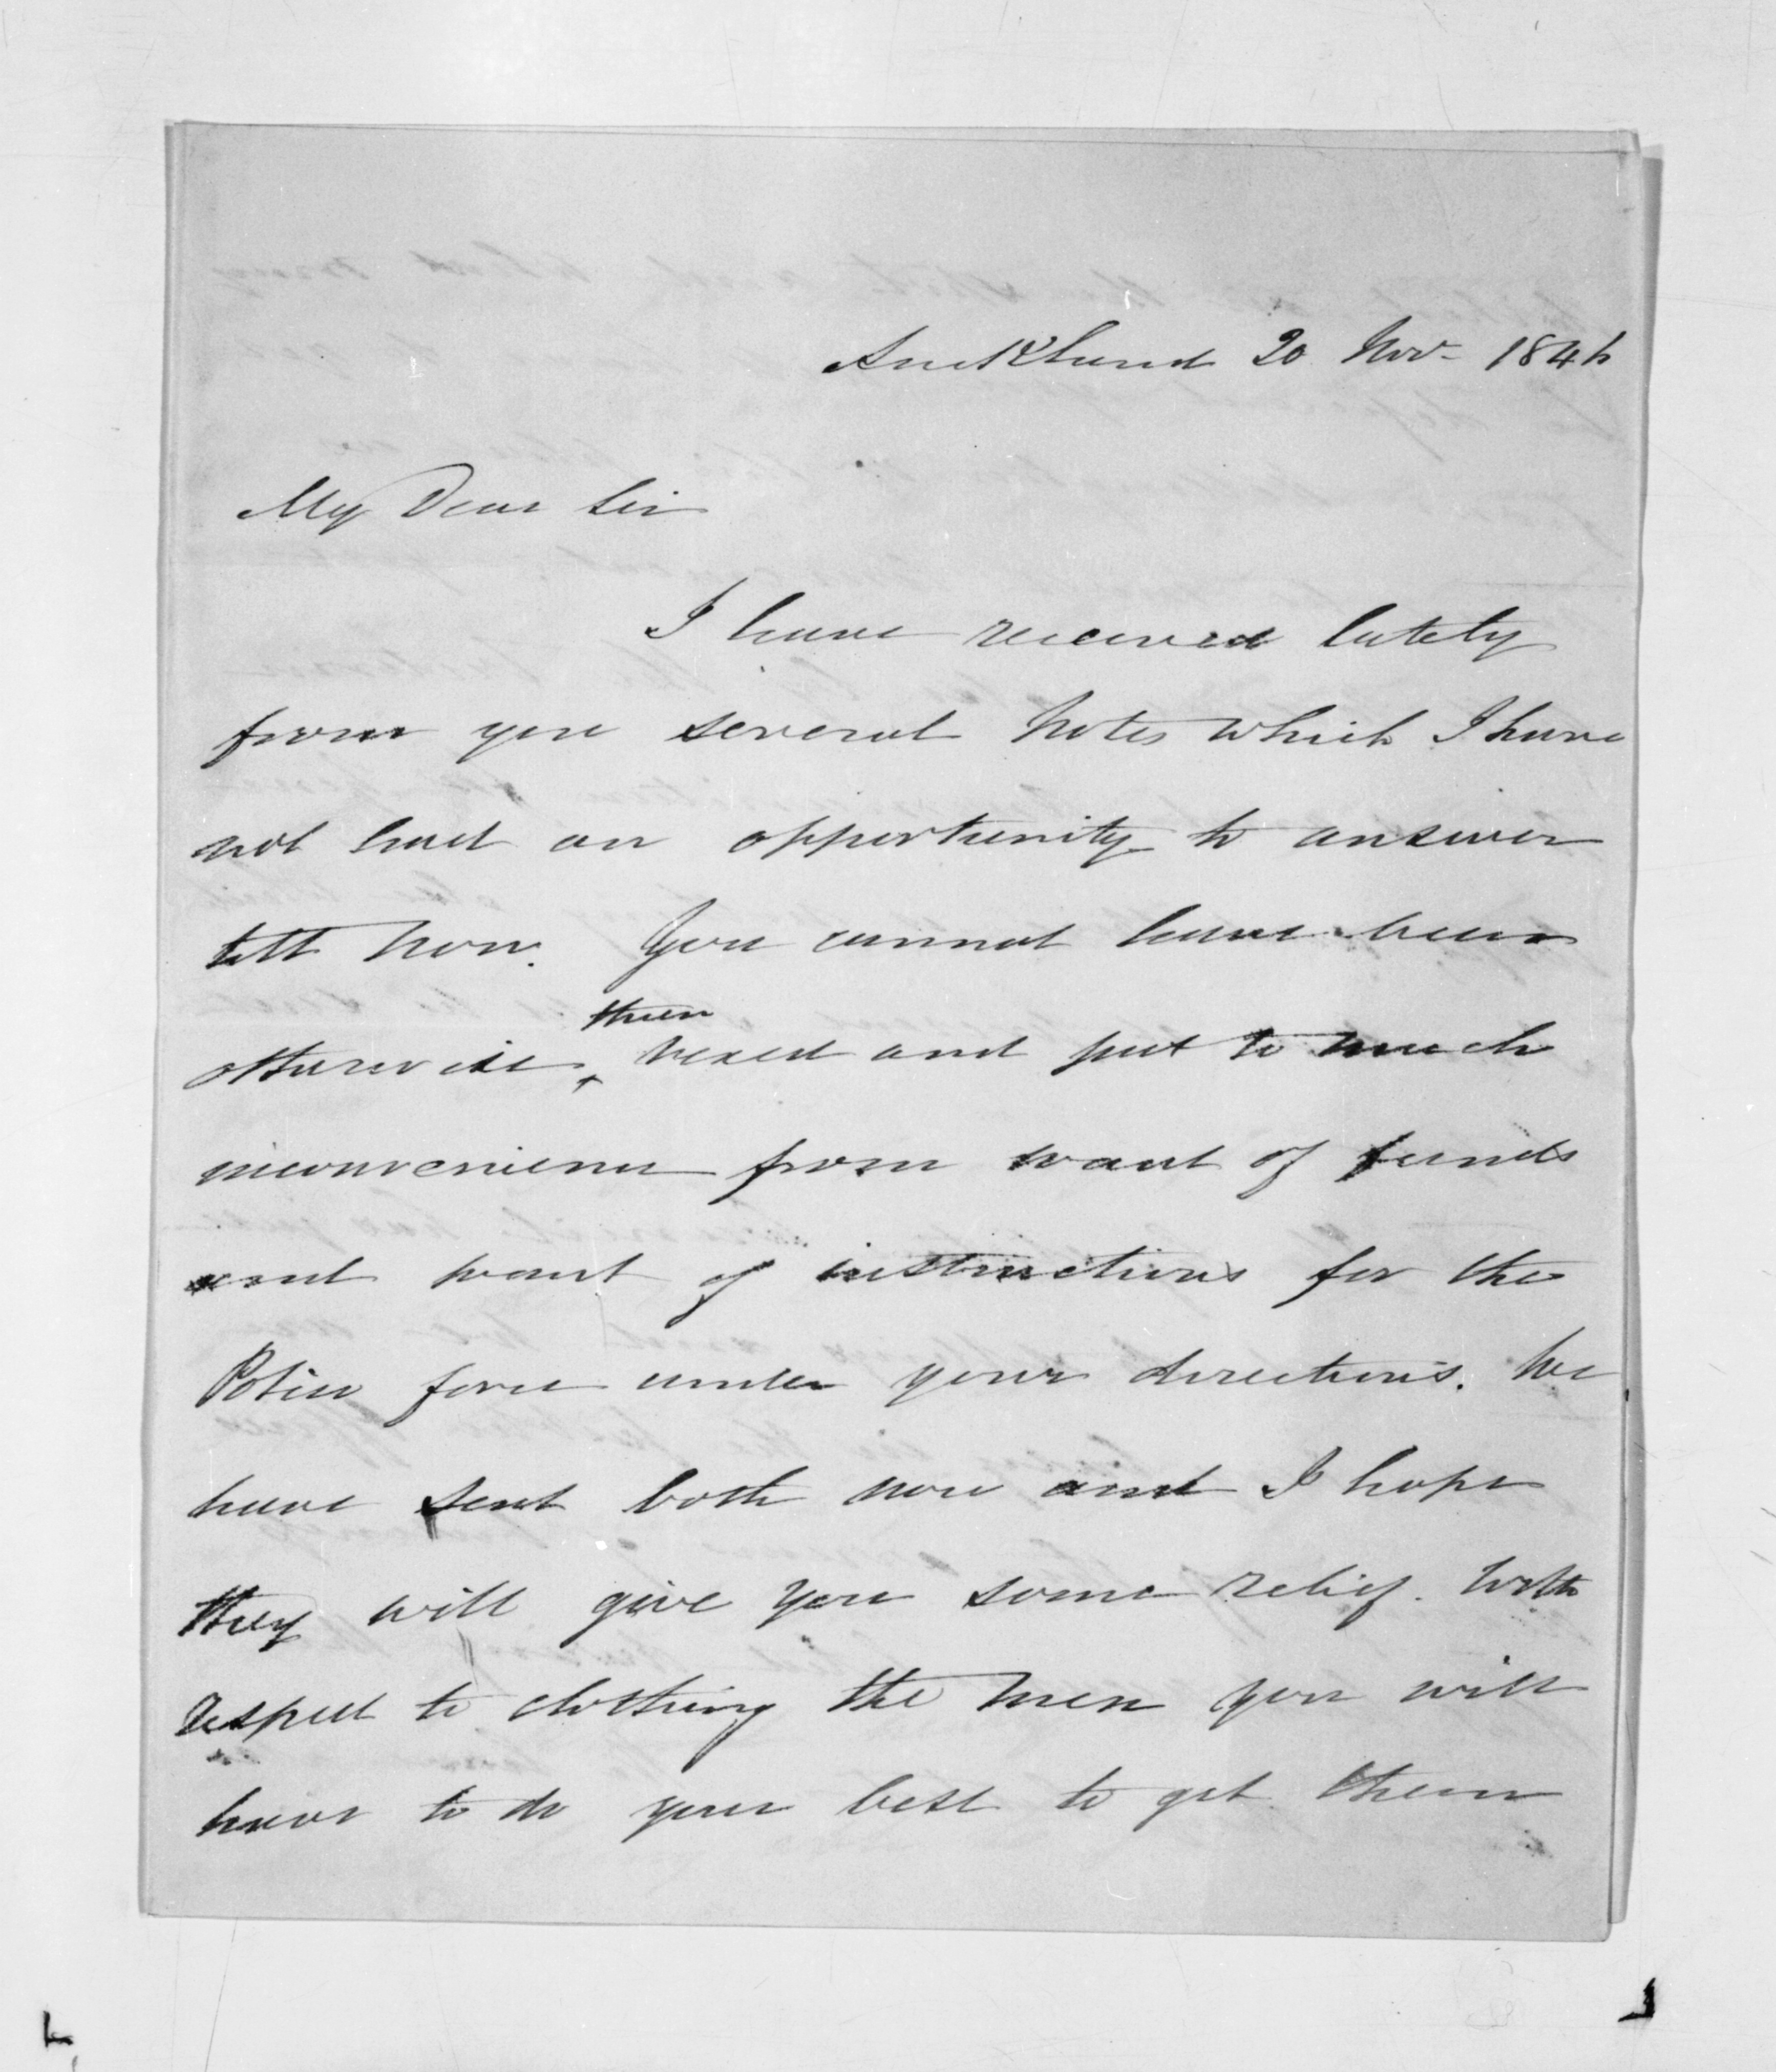 Auckland 20 Nov 1846
My Dear Sir
I have received lately
from you several Notes which I have
not had an opportunity to answer
till Now. You cannot have been
otherwise than vexed and put to much
inconvenience from want of funds
and want of instructions for the
Police force under your directions. We
have sent both now and I hope
they will give you some relief. With
respect to clothing the men you will
have to do your best to get them